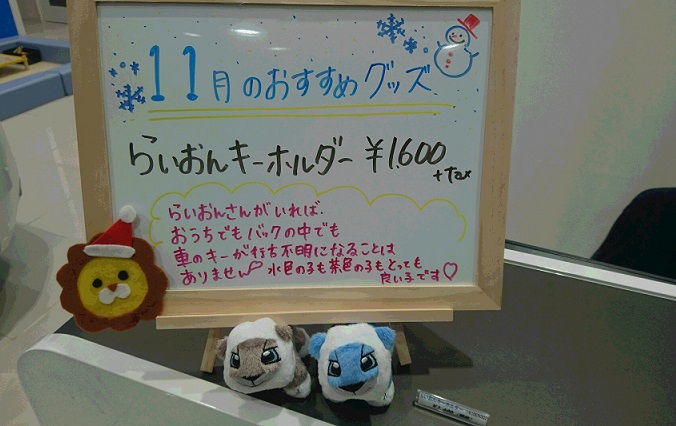 11月のおすすめグッズ
らいおんキーホルダー ¥1,600
+tax
らいおんさんがいれば、
おうちでもバックの中でも
車のキーが行方不明になることは
ありません 水色の子も茶色の子もとっても
良い子です♡